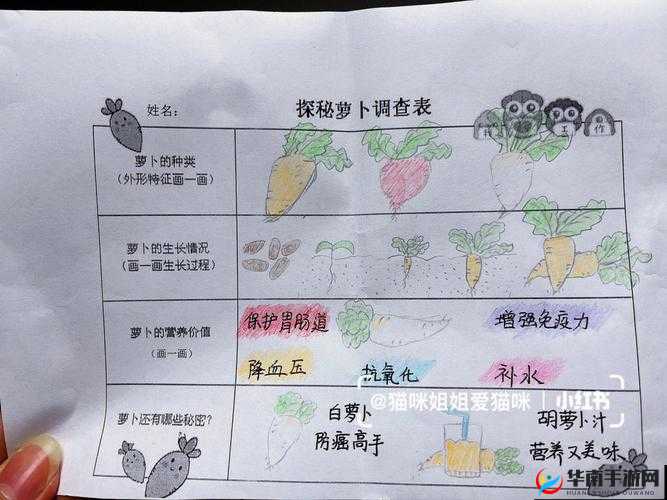 姓名:
探秘萝卜调查表
工作
萝卜的种类
(外形特征画一画)
萝卜的生长情况
(画一画生长过程)
萝卜的营养价值
(画一画)
保护胃肠道
增强免疫力
降血压
抗氧化
补水
@猫咪姐姐爱猫咪
小红书
萝卜还有哪些秘密?
白萝卜
防癌高手
胡萝卜汁
营养又美味
华南手游网
HUANANSHOUYOUWANG